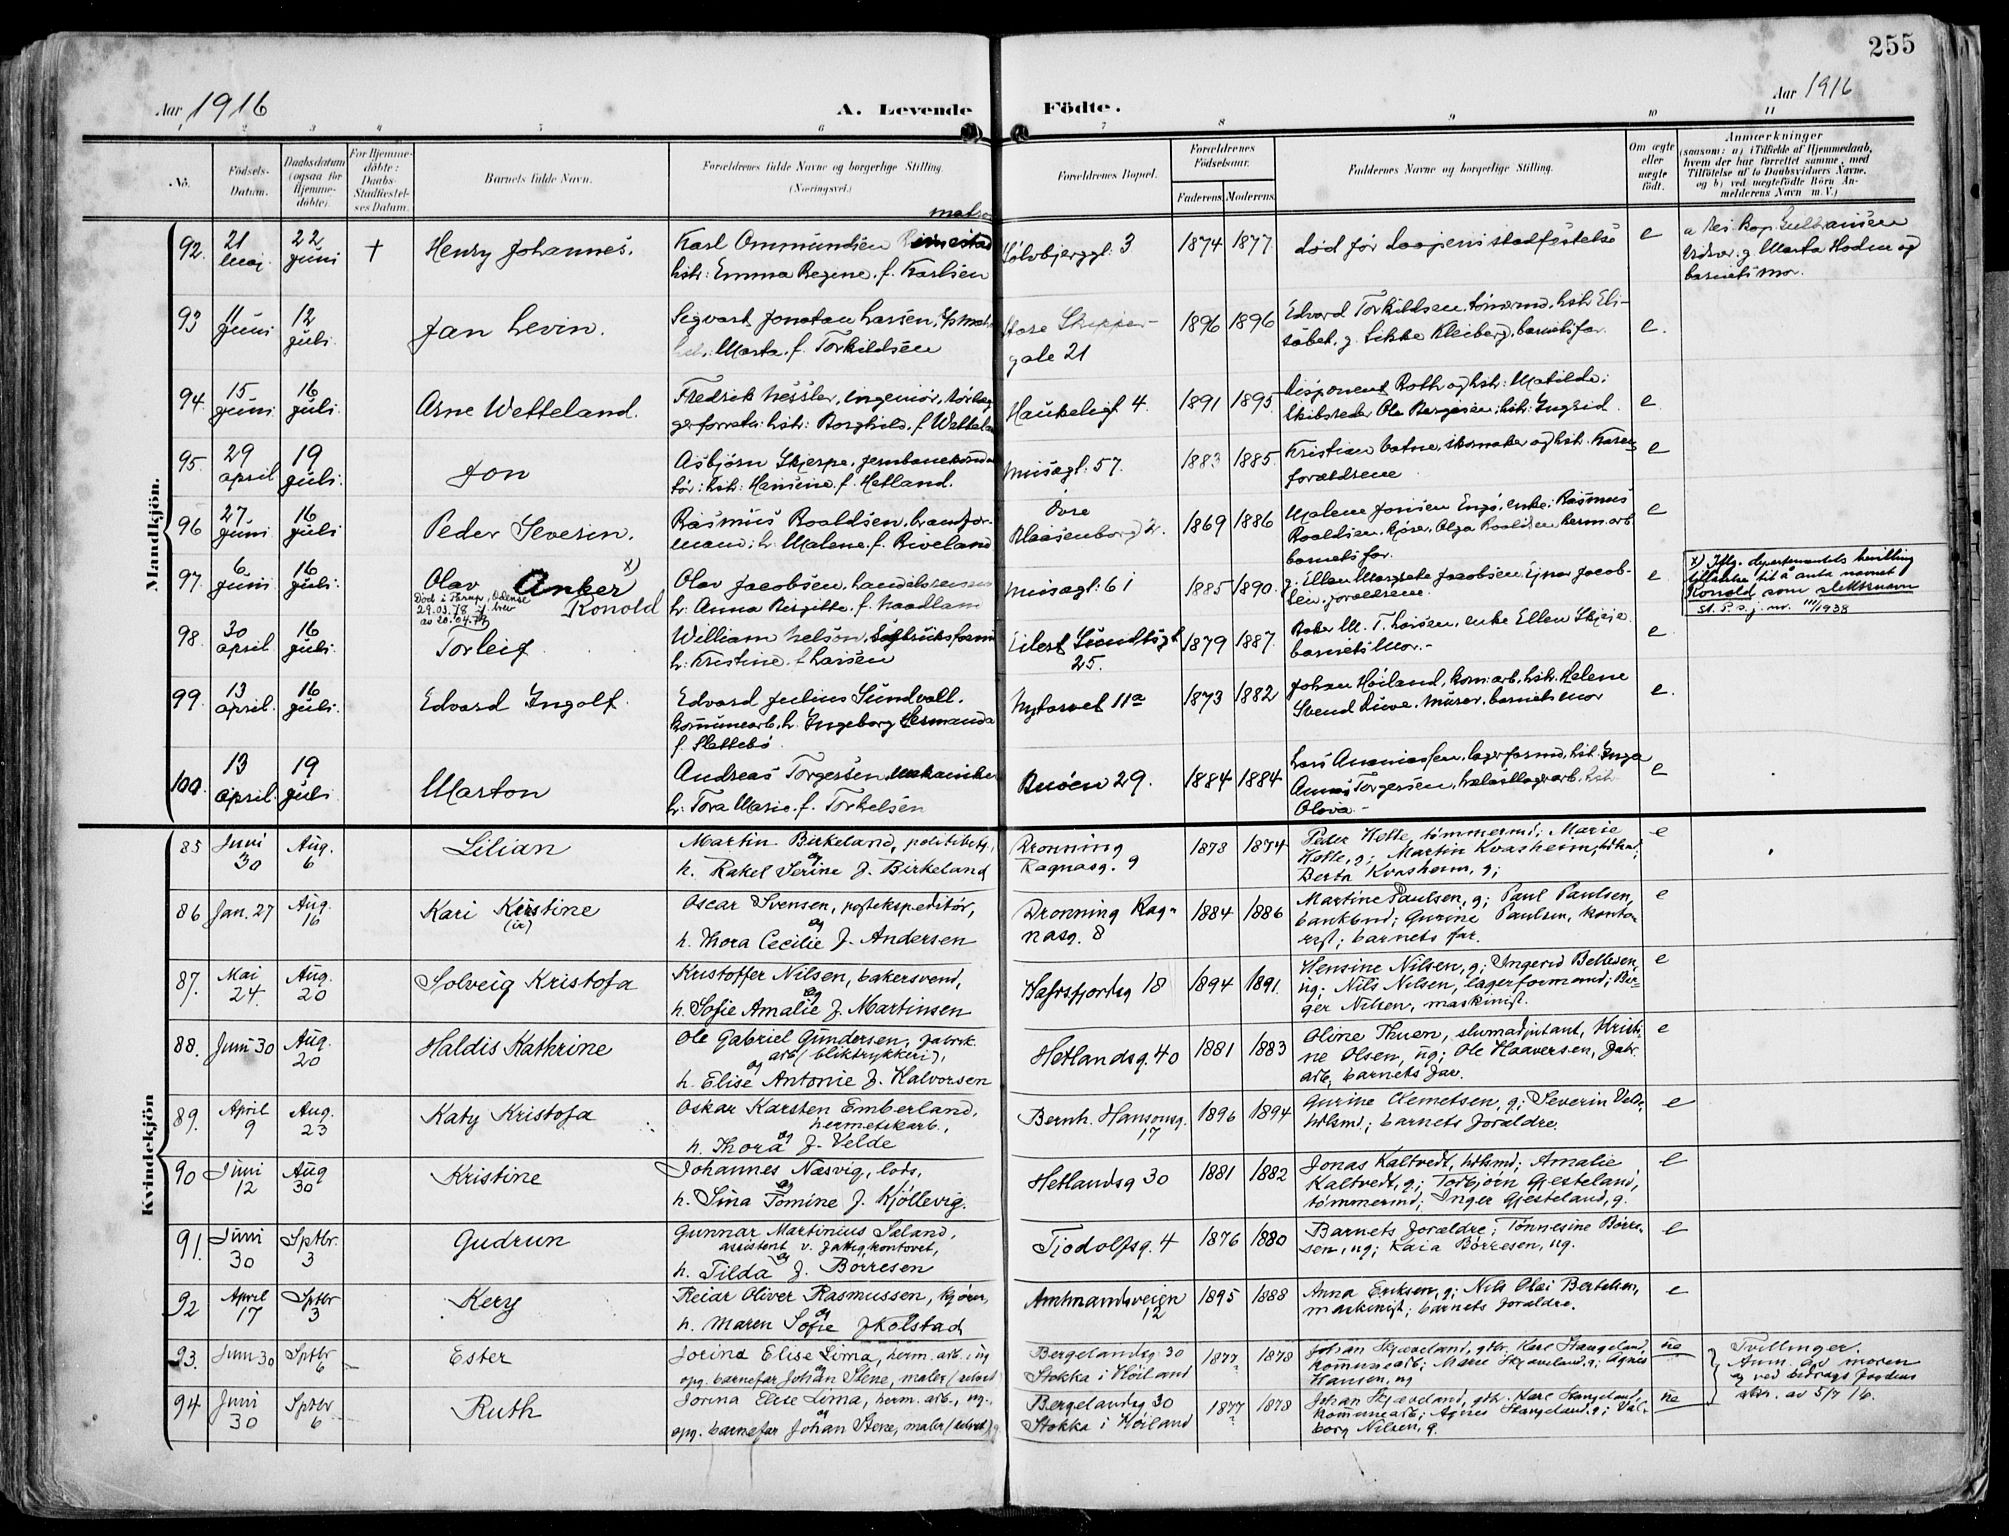 255
Aar 1916
A. Levende
Födte.
Aar 1916
1 2 3 4 5 6 7 8 9 10 11
No.
Födsels-
Datum.
Daabsdatum
(ogsaa for
Hjemme-
döbte).
For Hjemme-
döbte:
Daabs-
Stadfæstel-
ses Datum.
Barnets fulde Navn.
Forældrenes fulde Navne og borgerlige Stilling.
(Næringsvei.)
Forældrenes Bopæl.
Forældrenes
Födselsaar.
Faderens. Moderens.
Faddernes Navne og borgerlige Stilling.
Om ægte
eller
uægte
födt.
Anmærkninger
(saasom: a) i Tilfælde af Hjemmedaab,
hvem der har forrettet samme, med
Tilföielse af to Daabsvidners Navne,
og b) ved uægtefödte Börn An-
melderens Navn m. V.)
Mandkjön.
92. 21 Maj 22 Juni † Henry Johannes.
Karl Ommundsen
hstr: Emma Regine f. Karlsen
Sølvbjerggt. 3 1874 1877 død før daapens stadfæstelse e
g. Marta Hodne og
barnets mor.
93 11 Juni 12 Juli Jan Levin.
Sigvart Jonatan Larsen
Marta f. Torkildsen
Store Skipper-
gate 21 1896 1896
Edvard Torkildsen, tømrmd, hstr Eli-
sabet, g. Sikke Kleiberg, barnets far. e.
94. 15 Juni 16 Juli. Arne Wetteland.
Fredrik Nessler, ingeniør,
hstr: Borghild f. Wetteland
Haukeligt 4 1891 1895
Disponent Roth og hstr: Matilde;
Skibsreder Ole Bergesen: hstr: Ingrid. e
95. 29 april 19 Juli. Jon
Asbjørn Skjerpe, jernbanekonduk-
tør: hstr: Hansine f. Hetland.
Misagt: 57. 1883 1885.
Kristian Vatne, skomaker og hstr. Karen,
forældrene e
96 27 Juni 16 Juli Peder Severin.
Rasmus Roaldsen, brandfor-
mand; h. Malene f. Riveland
Øvre
Blaasenborg 2. 1869 1886
Malene Jonsen Engø, enke; Rasmus
Roaldsen, kjører, Olga Roaldsen hermarb
barnets far. e
97. 6 Juni 16 Juli. Olav Anker x)
Konold
Død i Pårup, Odense
29.03.78 jf brev
av 20.04.79
Olav Jacobsen, handelsreisende
h. Anna Birgitte f. Naadland
Misagt: 61 1885 1890.
g. Ellen Margrete Jacobsen, Ejnar Jacob-
sen, forældrene. e
x) Iflg. departementets bevilling
tillatelse til å anta navnet
Konold som slektsnavn
st. p. s. j. nr. 111/1938
98. 30 april 16 Juli. Torleif
William Nelson,
h. Kristine f. Larsen
Eilert Sundtsgt
25. 1879 1887.
Baker M. T. Larsen, enke Ellen Skjeie
barnets mor.- e
99. 13 april. 16 Juli. Edvard Ingolf.
Edvard Julius Sundvall.
kommunearb, h. Ingeborg Hermanda
f. Slettebø.
Nytorvet 11a 1873 1882
Johan Høiland, kom:arb, hstr. Helene
Svend Due, murer, barnets mor e.
100. 13 april. 19 Juli Marton
Andreas Torgersen Mekaniker
h: Tora Marie f. Torkelsen
Buøen 29. 1884 1884
Lars Ananiassen, lagerformd, hst. Inga
Torgersen,
Olava - e
Kvindekjön
85 Juni 30 Aug. 6 Lilian
Martin Birkeland, politibetj,
og
h. Rakel Serine f. Birkeland
Dronning
Ragnasg. 9 1878 1874
Peder Hette, tömmermd; Marie
Hette, g; Martin Kvasheim,
Berta Kvasheim, g; e
86 Jan. 27 Aug. 16 Kari Kirstine
(ir)
Oscar Svensen, postekspeditör,
og
h. Thora Cecilie f. Andersen
Dronning Rag-
nasg. 8 1884 1886
Martine Paulsen, g; Paul Paulsen,
bankbud; Gurine Paulsen, konto-
rist; barnets far. e
87. Mai 24. Aug. 20 Solveig Kristofa
Kristoffer Nilsen, bakersvend,
og
h. Sofie Amalie f. Martinsen
Hafrsfjordsg 18 1894 1891.
Hensine Nilsen, g; Ingerid Bettesen,
ug; Nils Nilsen, lagerformand; Bir-
ger Nilsen, maskinist. e
88. Juni 30 Aug. 20 Haldis Kathrine
Ole Gabriel Gundersen, fabrik.
arb (bliktrykkeri),
og
h. Elise Antonie f. Halvorsen
Hetlandsg. 40 1881 1883
Oline Thuen, slumadjutant, Kristi-
ne Olsen, ug; Ole Haaversen, fabr.
arb, barnets far. e
89. April 9 Aug. 23 Katy Kristofa
Oskar Karsten Emberland,
hermetikarb.,
og
h. Thora f. Velde
Bernh. Hansensg.
17 1896 1894
Gurine Clemetsen, g; Severin Velde,
hdlsmd; barnets foraldre. e
90 Juni 12 Aug 30 Kristine
Johannes Næsvig, lods,
og
h. Sina Tomine f. Kjöllevig.
Hetlandsg 30 1881 1882
Jonas Kaltvedt, hdlsmd; Amalie
Kaltvedt, g; Torbjörn Gjesteland,
tömmermd; Inger Gjesteland, g. e
91. Juni 30 Sptbr. 3 Gudrun
Gunnar Martinius Saland,
assistent v. fattigkontoret,
og
h. Tilda f. Börresen
Tiodolfsg. 4 1876 1880
Barnets foraldre; Tönnesine Börre-
sen, ug; Kaia Börresen, ug. e
92 April 17 Sptbr 3 Kery
Reiar Oliver Rasmussen, kjörer,
og
h. Maren Sofie f Kolstad
Amtmandsveien
12 1895 1888
Anna Eriksen, g; Nils Olai Bertelsen,
maskinist; barnets foraldre. e
93. Juni 30 Sptbr 6 Ester
Jorina Elise Lima, herm. arb. ug
og
opg. barnefar Johan Stene, maler
Bergelandsg. 30
Stokka i Höiland 1877 1878
Johan Skjæveland, gtbr. Kare Stangeland,
kommunearb; Marie Skjæveland, g; Agnes
Hansen, ug uæ
Tvillinger.
Anm. av moren
og ved bidrags
av 5/7 16.
94 Juni 30 Sptbr 6 Ruth
Jorina Elise Lima, herm. arb., ug.,
og
opg. barnefar Johan Stene, maler
Bergelandsg 30
Stokka i Höiland 1877 1878
Johan Skjæveland, gtbr. Kare Stangeland,
kommunearb; Agnes Stangeland, g; Val-
borg Nilsen, g. uæ